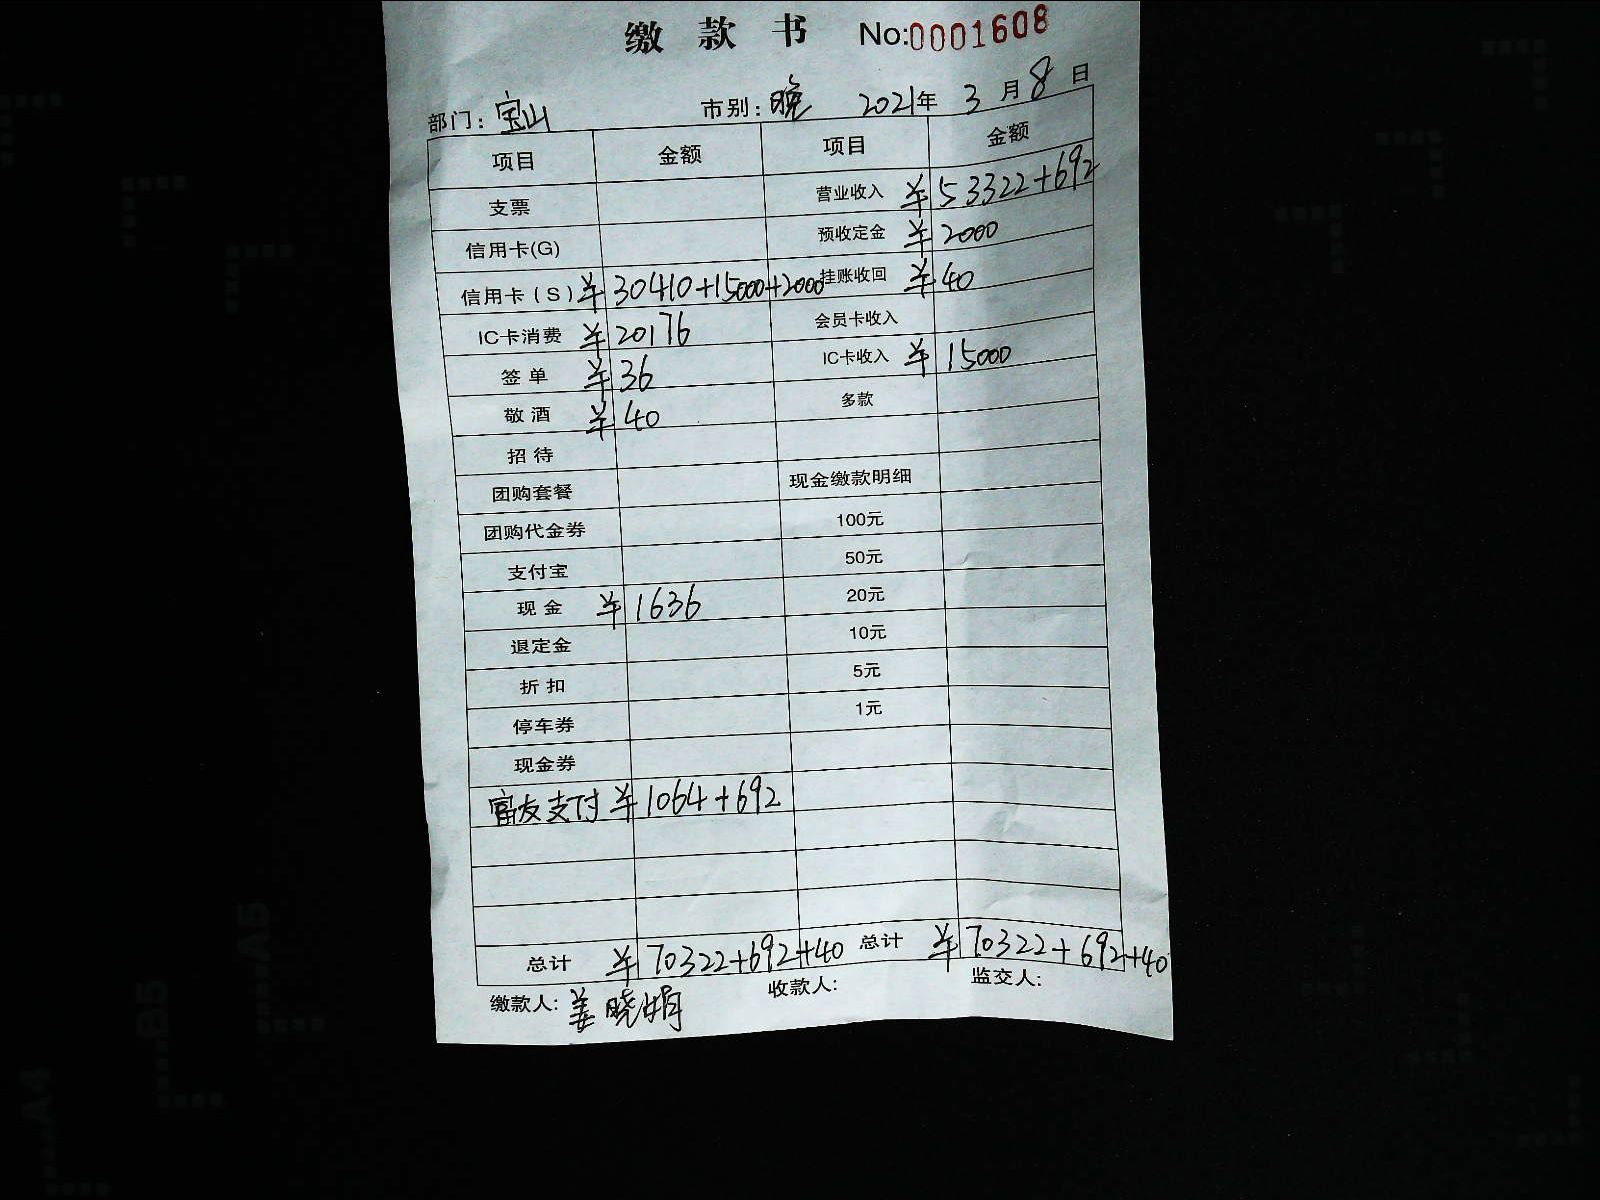 缴 款 书 No:0001608
部门：宝山 市别：晚 2021年 3 月 8 日
项目 金额 项目 金额
支票 营业收入 ¥53322+692
信用卡(G) 预收定金 ¥2000
信用卡（S）¥30410+15000+2000 挂账收回 ¥40
IC卡消费 ¥20176 会员卡收入
签 单 ¥36 IC卡收入 ¥15000
敬 酒 ¥40 多款
招 待
团购套餐 现金缴款明细
团购代金券 100元
支付宝 50元
现 金 ¥1636 20元
退定金 10元
折 扣 5元
停车券 1元
现金券
富友支付 ¥1064+692
总计 ¥70322+692+40 总计 ¥70322+692+40
缴款人: 姜晓娟 收款人: 监交人:
A5
B5
A4